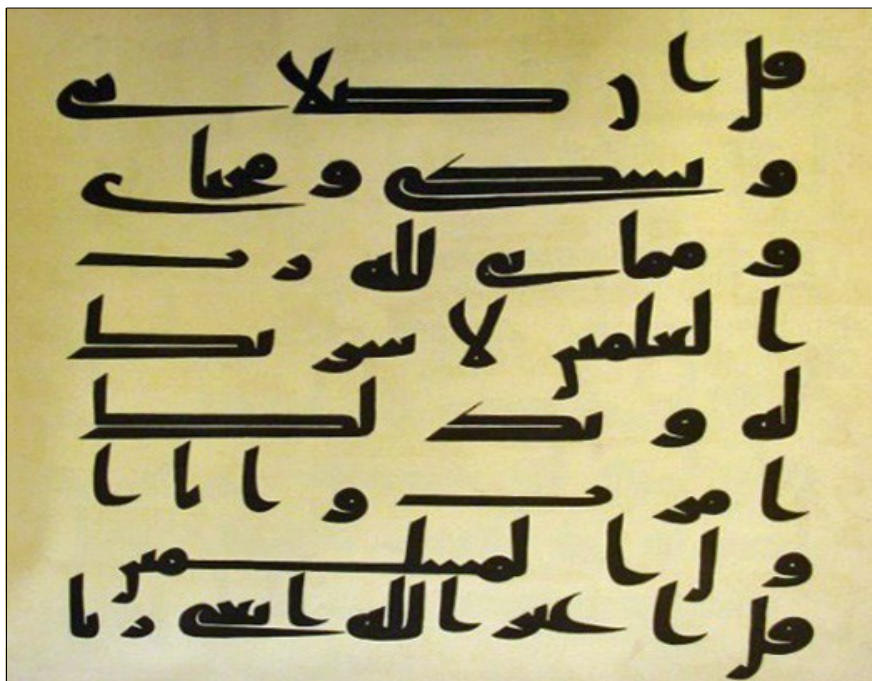 قل ان صلاتى
ونسكى ومحياى
ومماتى لله رب
العلمين لا شريك
له وبذلك
امرت وانا ا
ول المسلمين
قل اغير الله ابغى ربا